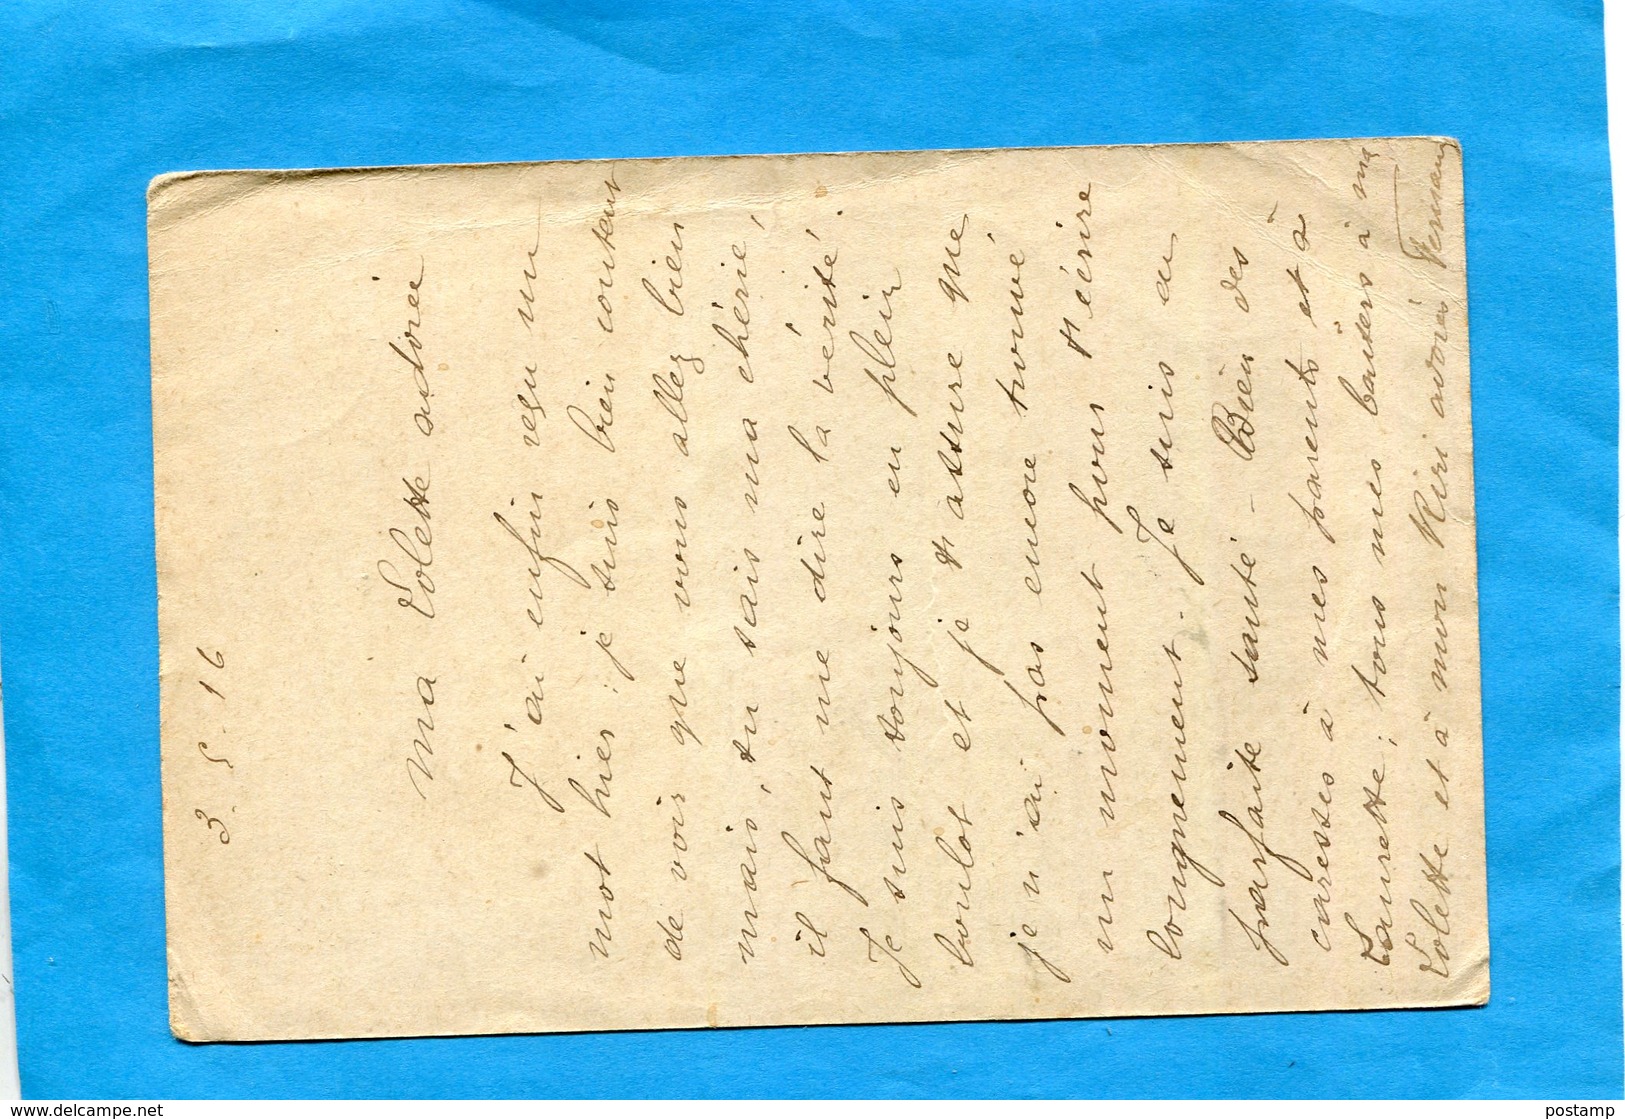 3. 5. 16
Ma Lolette adorée
J'ai enfin reçu un
mot hier; je suis bien content
de voir que vous allez bien
mais, tu sais ma chérie,
il faut me dire la vérité.
Je suis toujours en plein
boulot et je t'assure que
je n'ai pas encore trouvé
un moment pour t'écrire
longuement. Je suis en
parfaite santé - Bien des
caresses à mes parents et à
Laurette; tous mes baisers à ma
Lolette et à mon Kiri adorés Fernand
www.delcampe.net
postamp